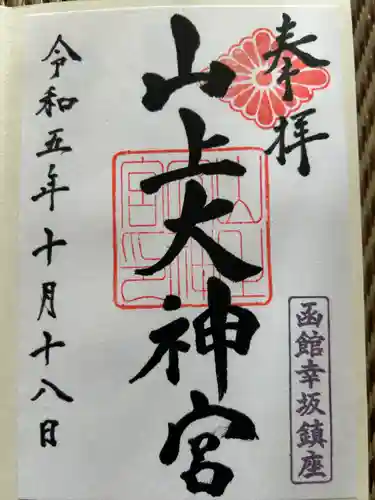 奉拝
山上大神宮
函館幸坂鎮座
令和五年十月十八日